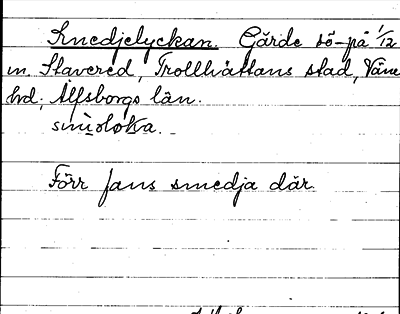 Smedjelyckan. Gärde sö-på 1/12
m. Stavered, Trollhättans stad, Väne
hd; Älfsborgs län.
Förr fans smedja där.